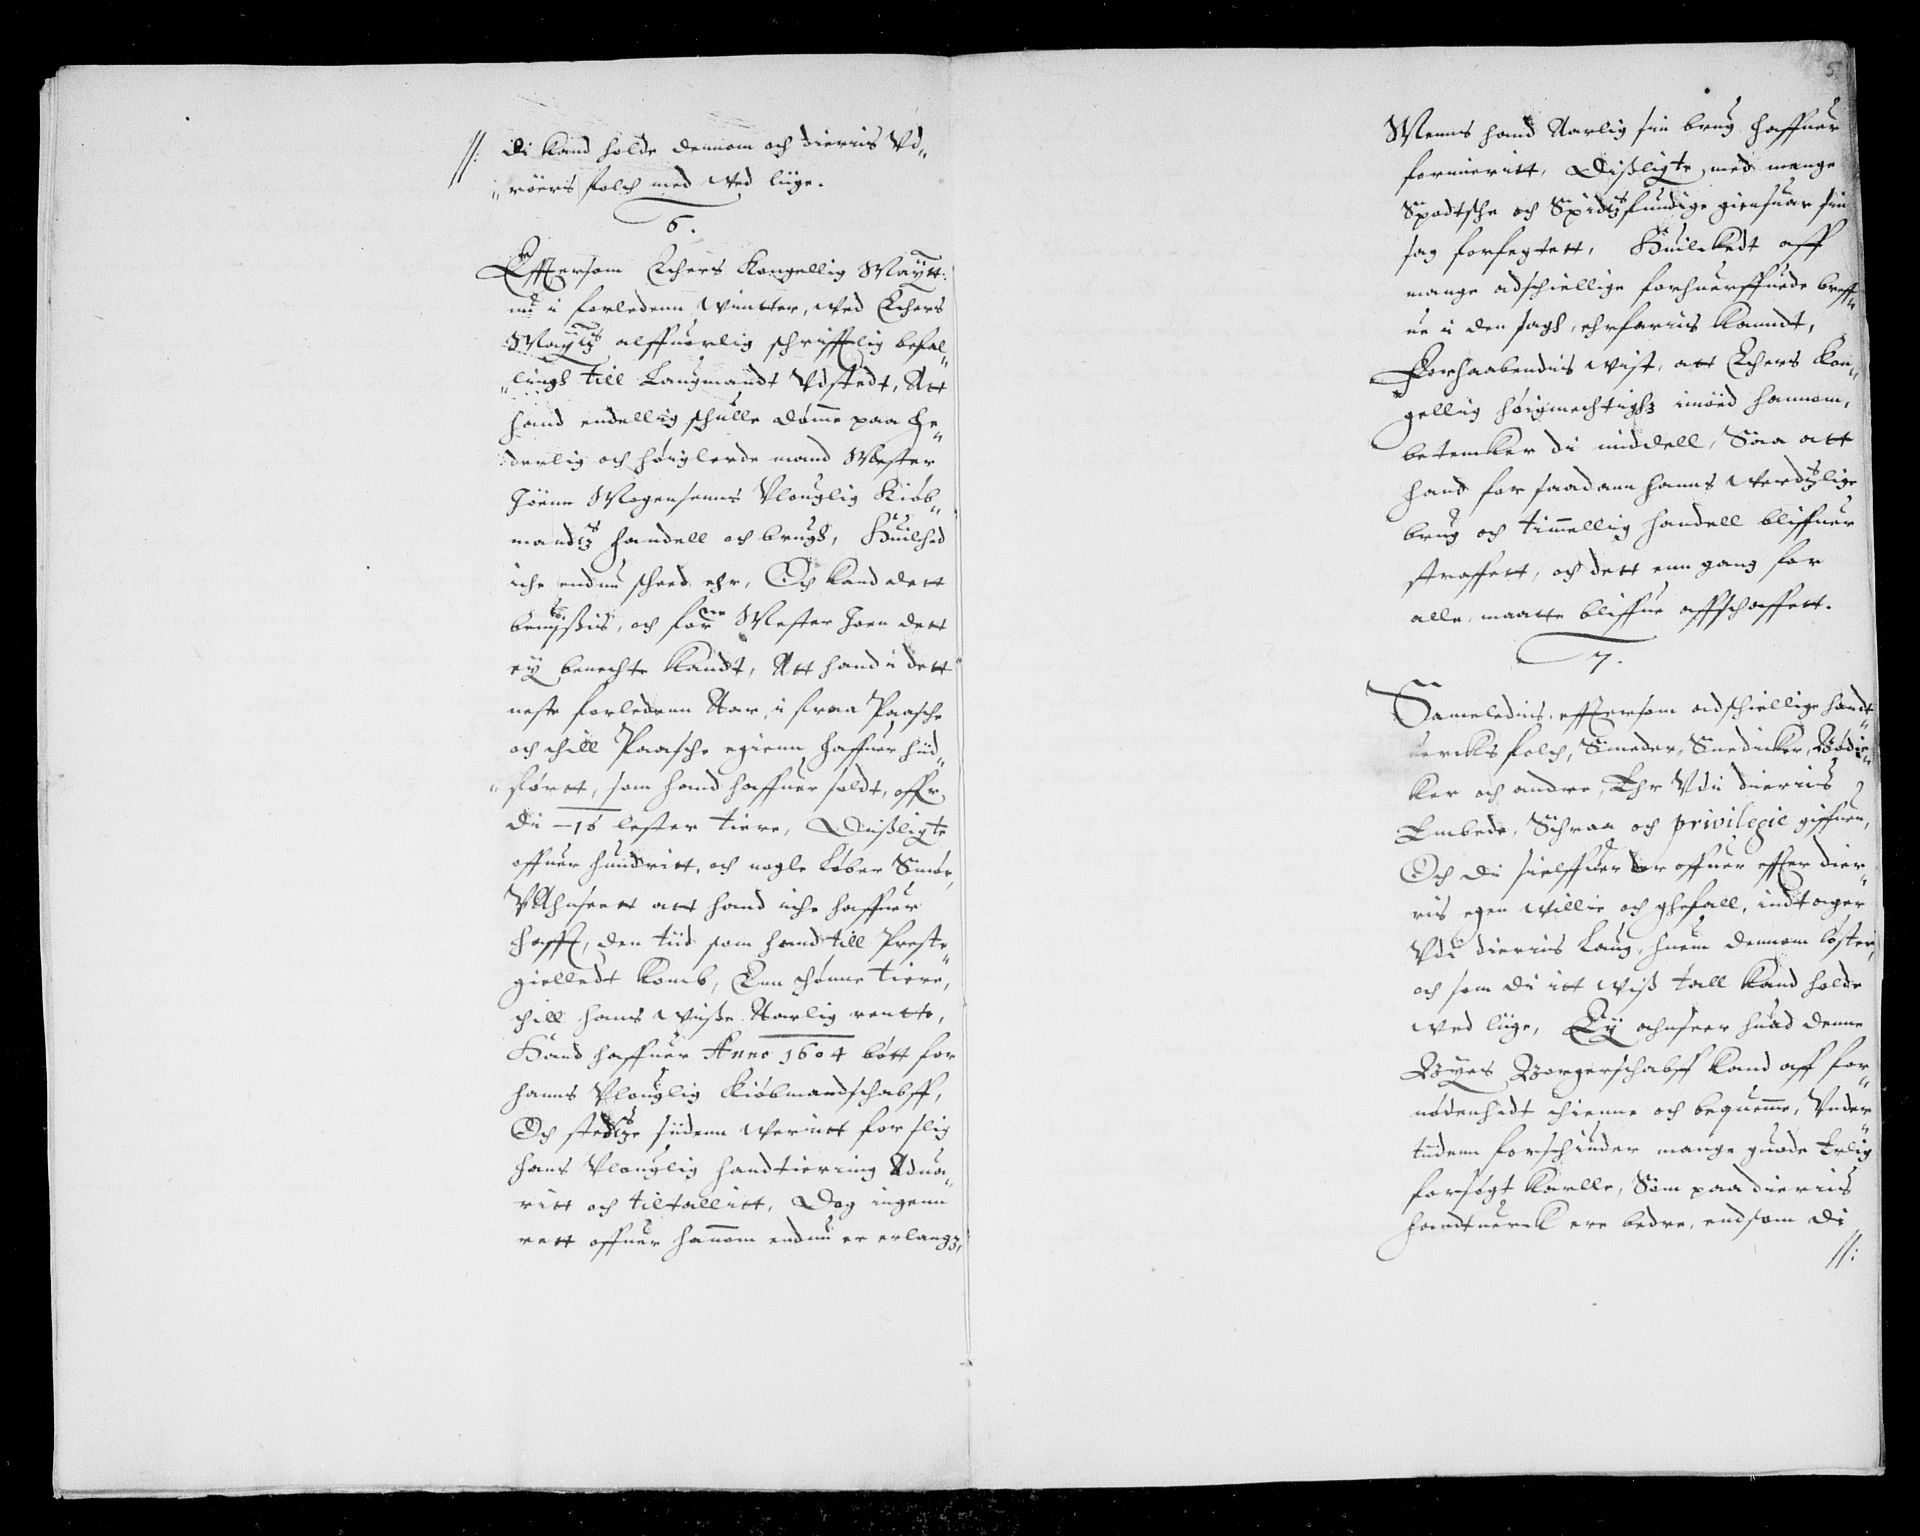 //: di kand holde dennom och dieris Vd„
„röers folch med Ved liige.
6.
Efftersom Echers Kongellig Maÿtt:
nu i forledenn Vintter, Ved Echers
Maÿtz alffuerlig schrifftlig befal„
„lingh till Laugmandt Vdstedt, Att
hand endellig schulle dømme paa he„
derlig och høiglerde mand Mester
Jöenn Mogensenns Vlouglig Kiöb„
mandtz handell och brugh, Huilchedt
iche endnu scheed ehr, Och kand dett
beuißis, och forne Mester Joen dett
eÿ benechte kandt, Att hand i dett
neste forledenn Aar, i fraa Paasche
och till Paasche egienn haffuer hiid„
„fört, som hand haffuer soldt, offr
di – 16 lester tiere, Dißligte
offuer hundritt, och nogle Løber Smör,
VAhnseett att hand iche haffuer
hafft, den tiid som hand till Preste„
gielledt komb, Enn thønne tiere,
till hans Viße Aarlig rentte,
Hand haffuer Anno 1604 bøtt for
hanns Vlouglig Kiöbmandschabff,
Och stedtze siidenn Verint for slig
hans Vlouglig handtiering Adua„
ritt och tiltallitt, Dog ingenn
rett offuer hannom endnu er erlangz,
5.
Menns hand Aarlig sin brug haffuer
formeritt, Dißligte, med mange
Spodtsche och Spidtzfundige giensuar sin
sag forfegtett, Huilckedt aff
mange adschiellige forhuerffuede breff„
ue i den sagh, ehrfaris kanndt,
Forhaabendis Vist, att Echers Kon„
gellig høigmechtighz imöed hannom,
betencker di middell, Saa att
hand for saadann hanns Verdtzlige
brug och timmellig handell bliffuer
straffett, och dett enn gang for
alle, maatte bliffue affschaffett.
7.
Sameledis, effttersom adschiellige handt„
uercks folch, Smeder, Snedicker, Bödi„
cker och andre, Ehr Vdi dieris
Embede, Schraa och privilegie giffuen,
Och di sielffuer der offuer effter dier„
ris egen Villie och gefall, indtager
Vdi dieris Laug, huem dennom løster,
och som di itt Viß tall kand holde
Ved liige, Eÿ ahnseer huad denne
Bÿes Borgerschabff kand aff for„
nödenhedt thienne och bequemme, Vnder„
tiidenn forschiuder mange guode Erlig
forsögt karlle, Som paa dieris
handtuerck ere bedre, end som di
//: